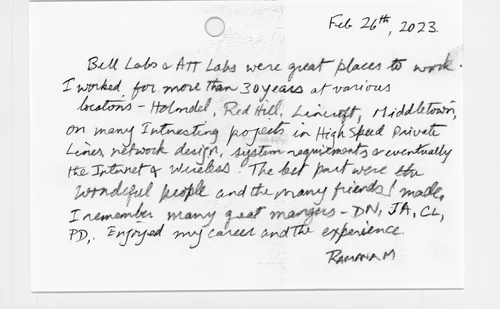 Feb 26th, 2023.
Bell Labs & ATT Labs were great places to work.
I worked for more than 30 years at various
locations - Holmdel, Red Hill, Lincroft, Middletown,
on many Interesting projects in High Speed Private
Lines, network design, system requirements & eventually
the Internet & Wireless. The best part were the
wonderful people and the many friends I made.
I remember many great mangers - DN, JA, CL,
PD,. Enjoyed my career and the experience.
RAMANA.M